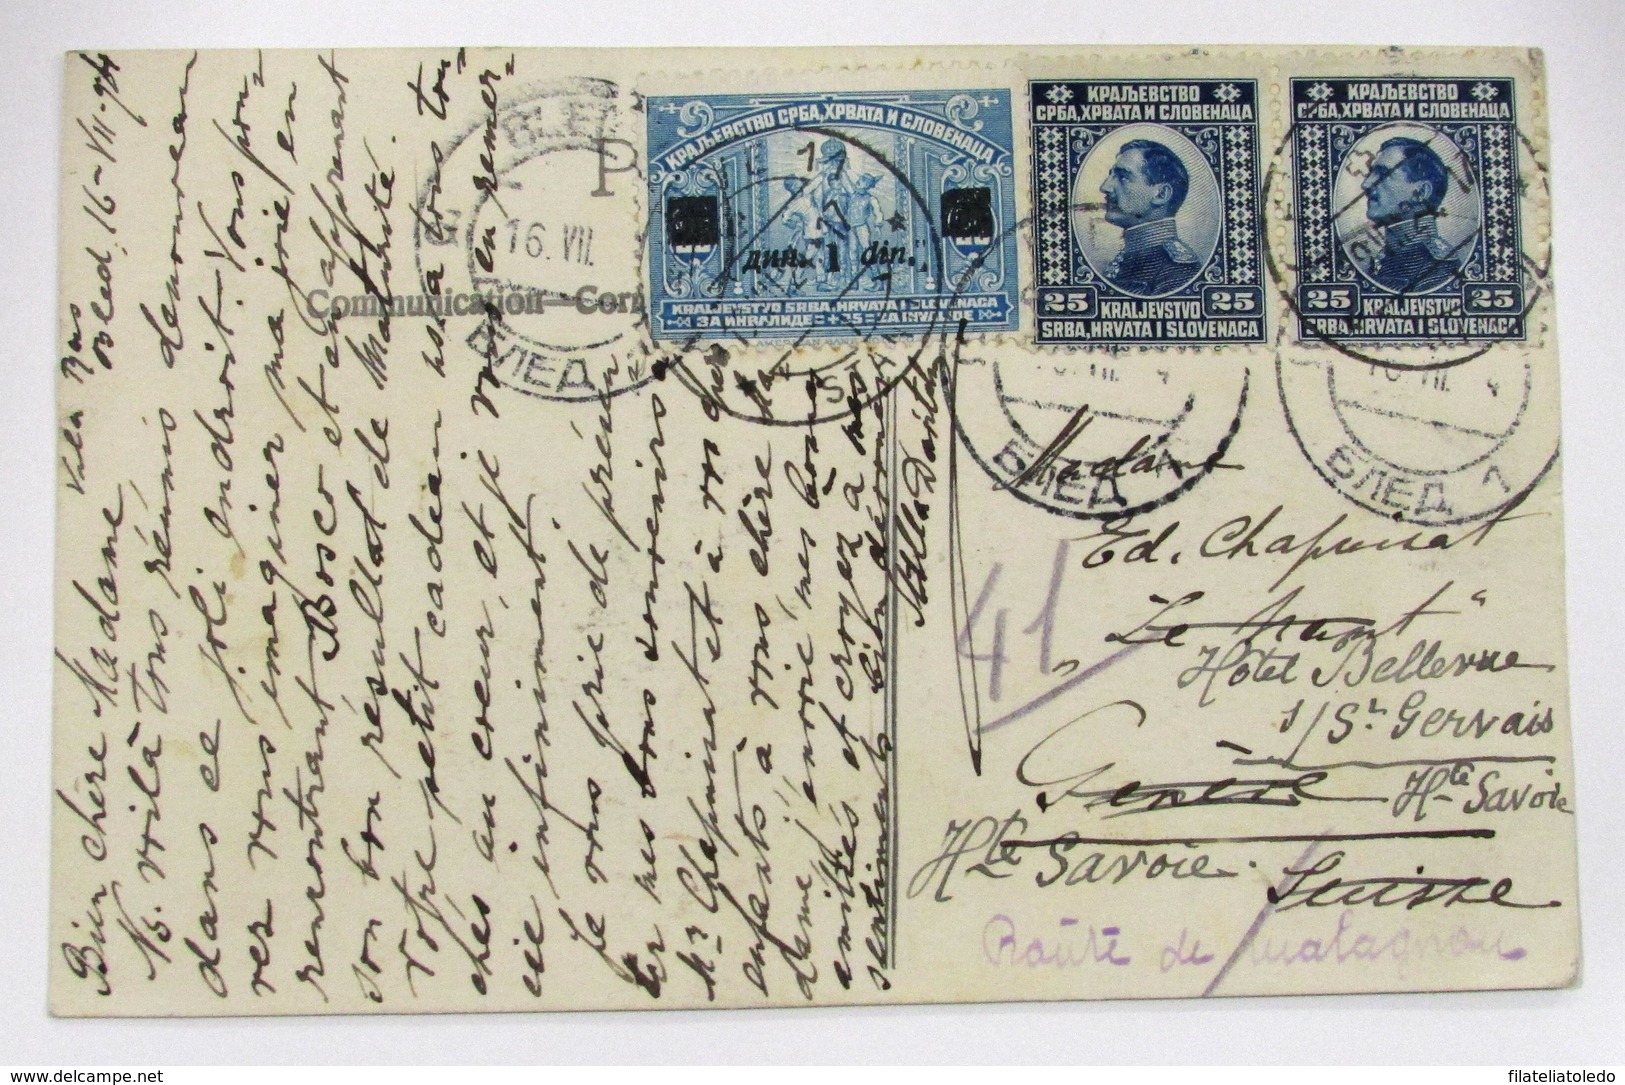 Villa Rus
Bled, 16-VII-924
Bien chère Madame
N. voilà tous réunis de nouveau
dans ce joli endroit. Vous pou=
vez vous imaginer ma joie en
rencontrant Bosco et en apprenant
son bon résultat de Maturité.
Votre petit cadeau us a tous tou=
chés au coeur, et je vous en remer=
cie infiniment.
Je vous prie de présen
ter mes bons souvenirs à
Mr Chapuisat et à vos
enfants à vous chère Ma
dame j'envoie mes bonnes
amitiés et croyez à mes
sentiments bien dévoués
Communication—Corr
P
КРАЉЕВСТВО СРБА, ХРВАТА И СЛОВЕНАЦА
дин. 1 din.
KRALJEVSTVO SRBA, HRVATA I SLOVENACA
ЗА ИНВАЛИДЕ + 25 ZA INVALIDE
КРАЉЕВСТВО
СРБА, ХРВАТА И СЛОВЕНАЦА
25 KRALJEVSTVO 25
SRBA, HRVATA I SLOVENACA
КРАЉЕВСТВО
СРБА, ХРВАТА И СЛОВЕНАЦА
25 KRALJEVSTVO 25
SRBA, HRVATA I SLOVENACA
BLED
16. VII.
БЛЕД 1
БЛЕД 1
БЛЕД 1
Madame
Ed. Chapuisat
41
Hôtel Bellevue
s/St Gervais
Genève
Hte Savoie
Hte Savoie.
Suisse
Route de Malagnou
fileteliatoledo